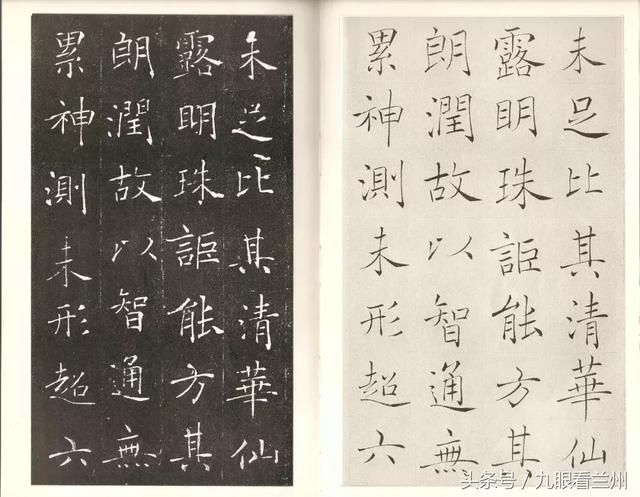 未足比其清華仙
露明珠詎能方其
朗潤故以智通無
累神測未形超六
未足比其清華仙
露明珠詎能方其
朗潤故以智通無
累神測未形超六
头条号／九眼看兰州